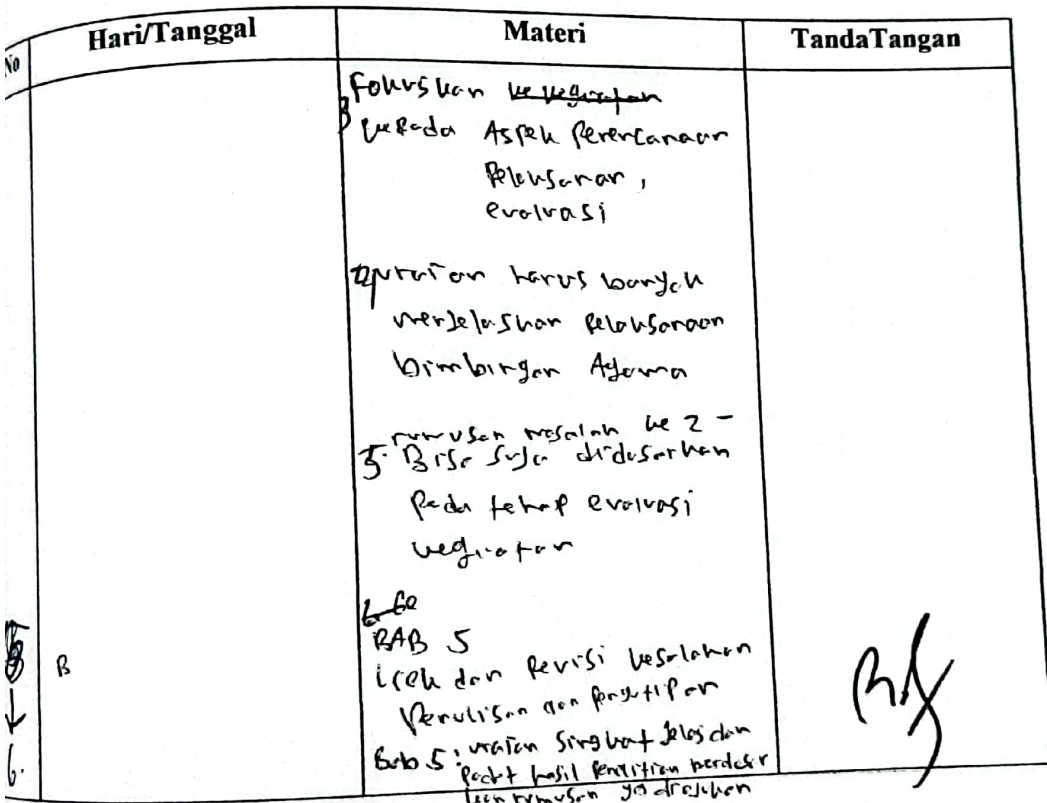 No Hari/Tanggal Materi TandaTangan
Fokuskan ke kegiatan
kepada Aspek Perencanaan
Pelaksanaan,
evaluasi
uraian harus banyak
menjelaskan Pelaksanaan
bimbingan Agama
rumusan masalah ke 2 -
5. Bisa saja didasarkan
Pada tahap evaluasi
kegiatan
BAB 5
B
cek dan Revisi kesalahan
Penulisan dan Pengutipan
Bab 5: uraian Singkat Jelas dan
Padat hasil Penelitian berdasar
kan rumusan yg diajukan
6.